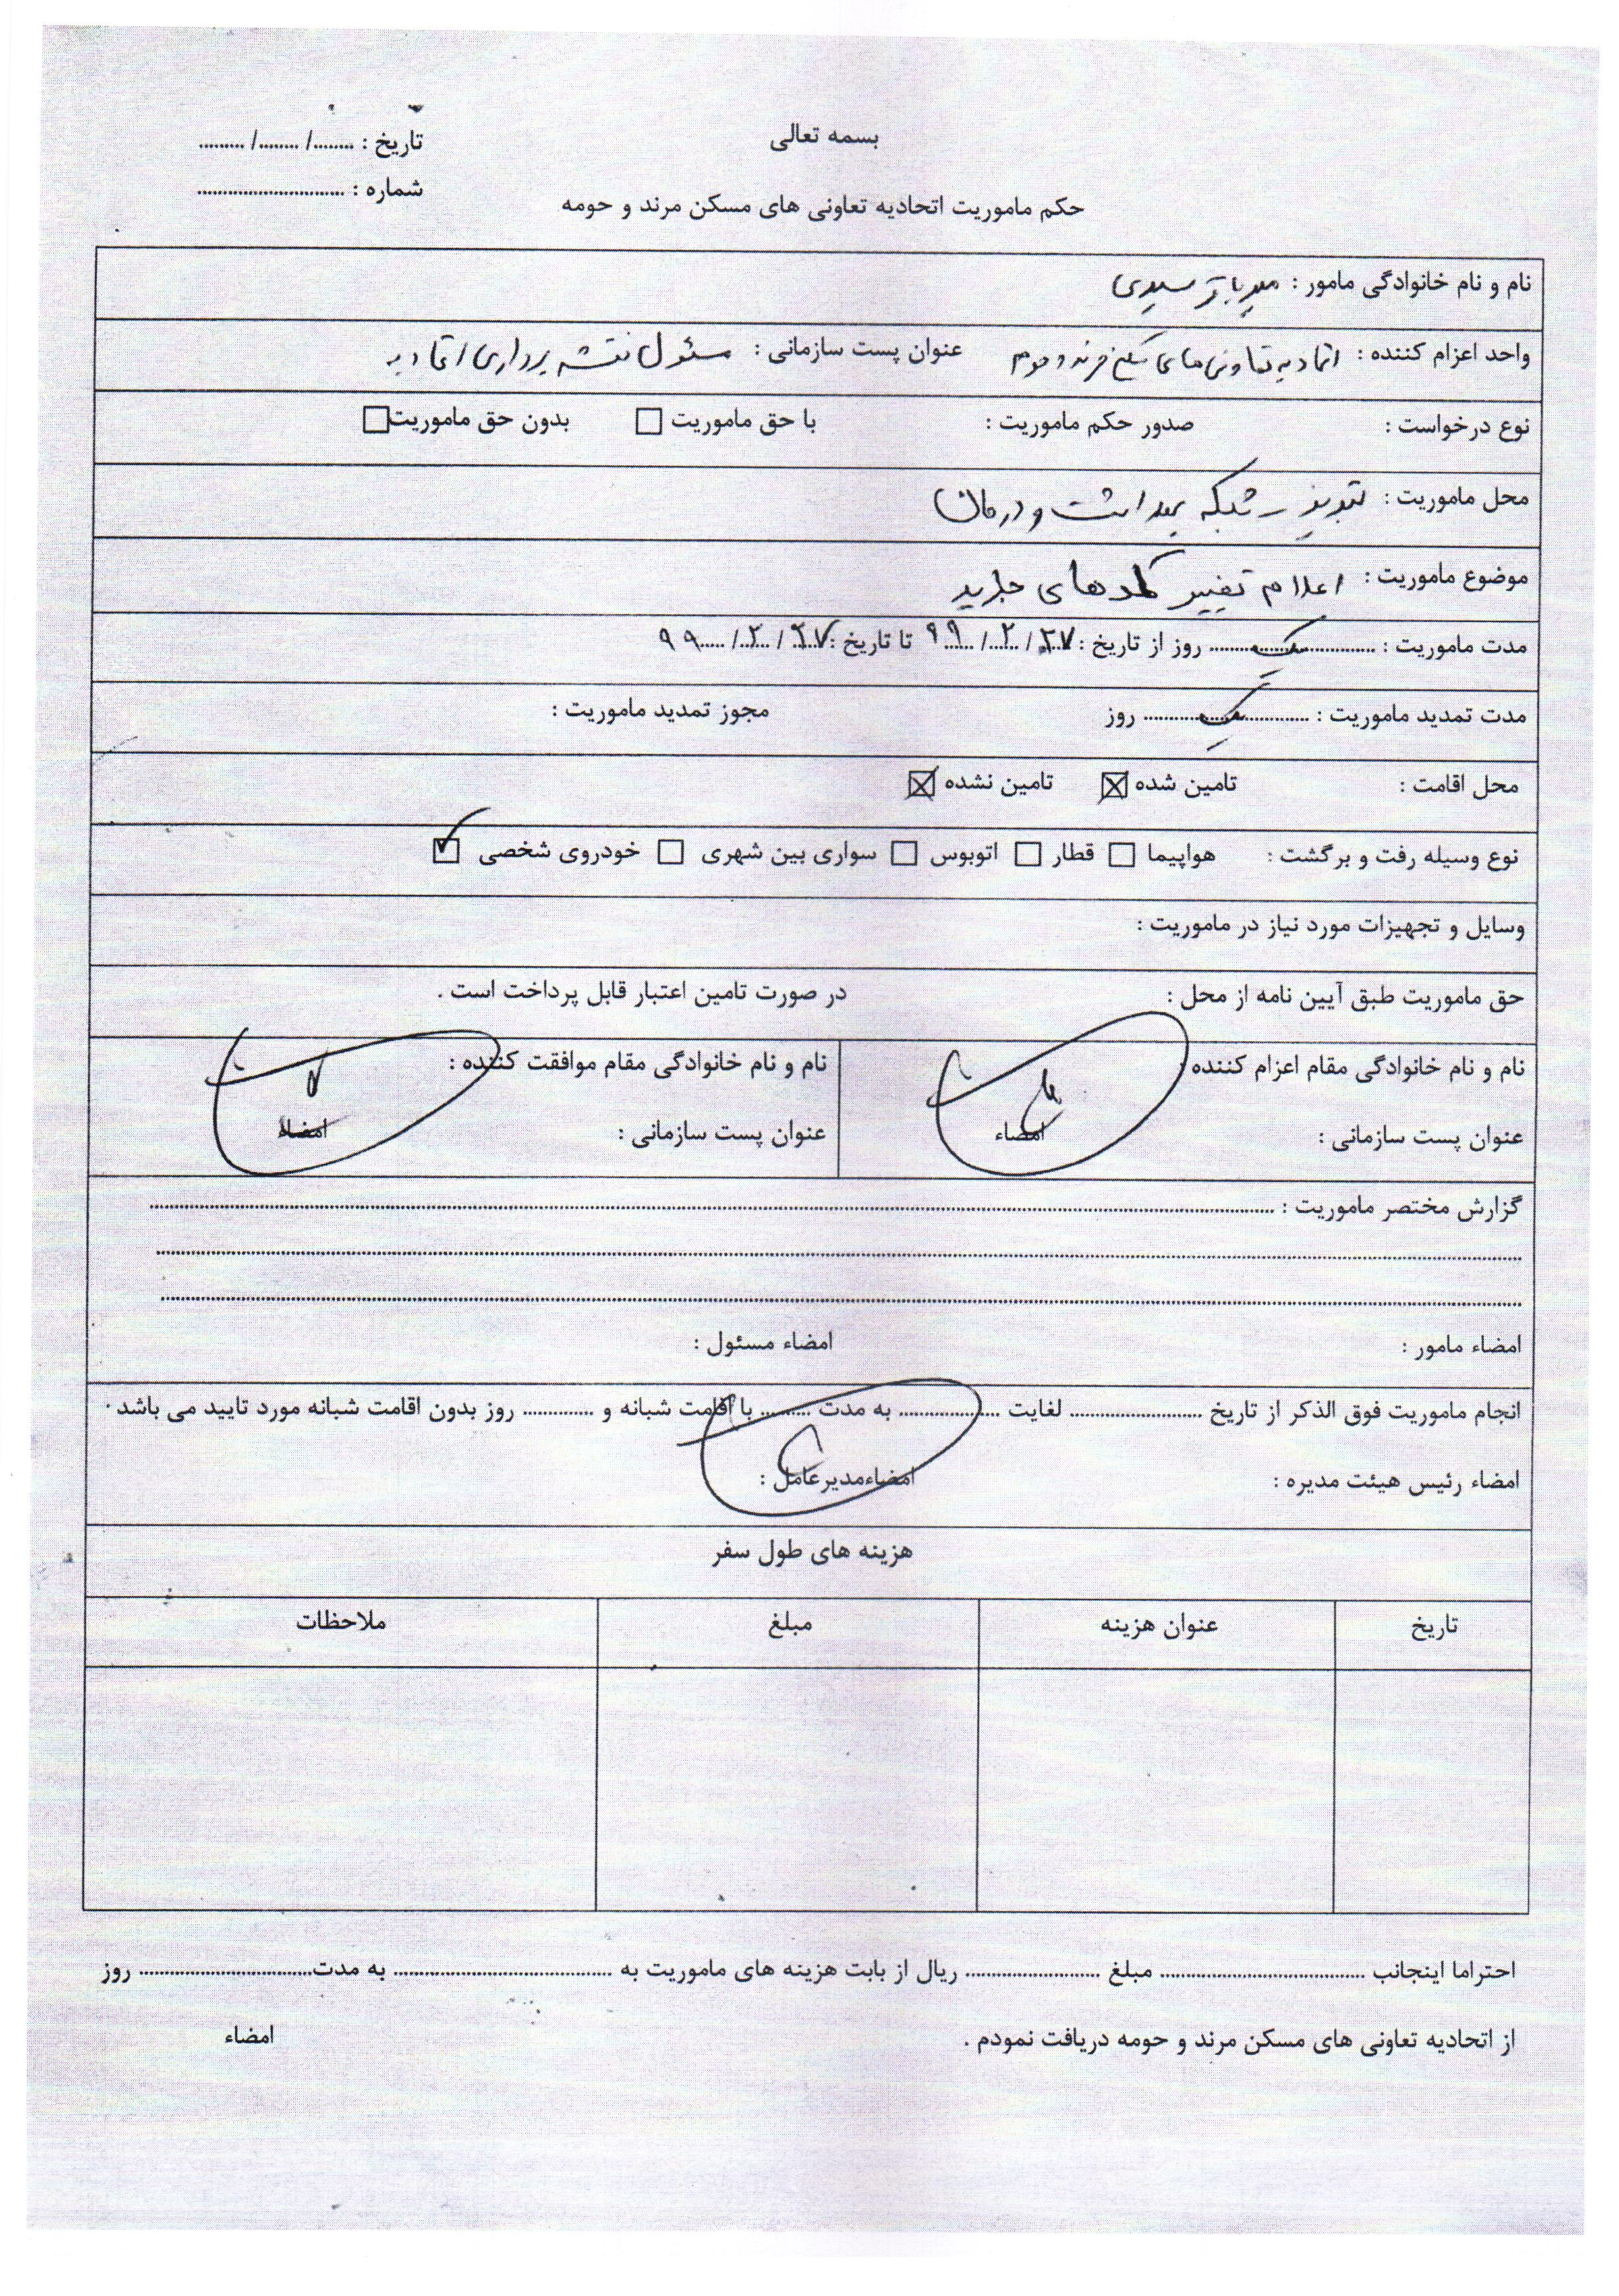 بسمه تعالی
تاریخ : ......../......../.........
شماره : ............................
حکم ماموریت اتحادیه تعاونی های مسکن مرند و حومه
نام و نام خانوادگی مامور : میر باقر سیدی
واحد اعزام کننده : اتحادیه تعاونی های مسکن مرند و حومه عنوان پست سازمانی : مسئول نقشه برداری اتحادیه
نوع درخواست : صدور حکم ماموریت : با حق ماموریت بدون حق ماموریت
محل ماموریت : تبریز - شبکه بهداشت و درمان
موضوع ماموریت : اعلام تغییر کدهای جدید
مدت ماموریت : یک روز از تاریخ : ۲۷/۲/۹۹ تا تاریخ : ۲۷/۲/۹۹
مدت تمدید ماموریت : یک روز مجوز تمدید ماموریت :
محل اقامت : تامین شده تامین نشده
نوع وسیله رفت و برگشت : هواپیما قطار اتوبوس سواری بین شهری خودروی شخصی
وسایل و تجهیزات مورد نیاز در ماموریت :
حق ماموریت طبق آیین نامه از محل : در صورت تامین اعتبار قابل پرداخت است .
نام و نام خانوادگی مقام اعزام کننده : نام و نام خانوادگی مقام موافقت کننده :
عنوان پست سازمانی : امضاء عنوان پست سازمانی : امضاء
گزارش مختصر ماموریت :
امضاء مامور : امضاء مسئول :
انجام ماموریت فوق الذکر از تاریخ ............ لغایت ............ به مدت ......... با اقامت شبانه و ............ روز بدون اقامت شبانه مورد تایید می باشد .
امضاء رئیس هیئت مدیره : امضاءمدیرعامل :
هزینه های طول سفر
تاریخ عنوان هزینه مبلغ ملاحظات
احتراما اینجانب ............ مبلغ ............ ریال از بابت هزینه های ماموریت به ............ به مدت............ روز
از اتحادیه تعاونی های مسکن مرند و حومه دریافت نمودم . امضاء